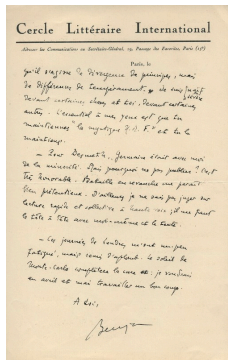 Cercle Littéraire International
Adresser les Communications au Secrétaire-Général, 19, Passage des Favorites, Paris (15e)
Paris, le
qu'il s'agisse de divergence de principes, mais
de différences de tempérament. Je suis
devant certaines choses, et toi, devant certaines
autres. L'essentiel à mes yeux est que tu
maintiennes la mystique et tu la
maintiens.
— Pour Desmeth, Germain était avec moi
de la minorité. Mais pourquoi ne pas publier ? C'est
très honorable. Bataille en revanche me paraît
bien prétentieux. D'ailleurs je ne sais pas juger sur
lecture rapide et collective à haute voix ; il me faut
le tête à tête avec moi-même et le texte.
— Les journées de Londres m'ont un peu
fatigué, mais suis d'aplomb. Le soleil de
Monte-Carlo complètera la cure et je reviendrai
en avril et mai travailler un bon coup.
A toi,